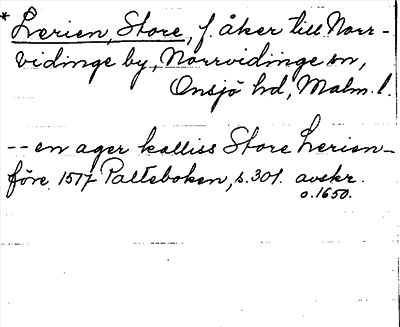 * Lerien, Store, f. åker till Norr-
vidinge by, Norrvidinge sn,
Onsjö hd, Malm. l.
-- en ager kalliss Store Lerien
före 1517 Palteboken, s. 301. avskr.
o. 1650.